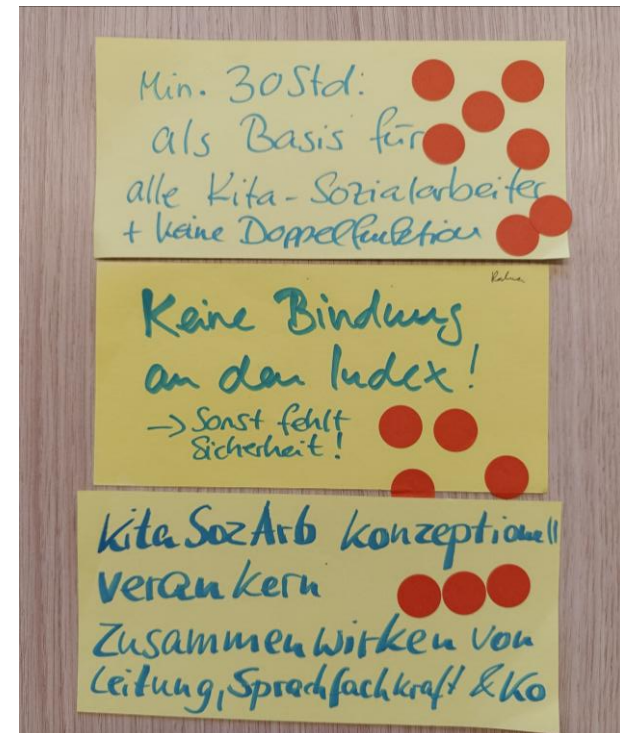 Min. 30 Std:
als Basis für
alle Kita-Sozialarbeiter
+ keine Doppelfunktion
Keine Bindung
an den Index!
-> Sonst fehlt
Sicherheit!
Kita SozArb konzeptionell
verankern
Zusammenwirken von
Leitung, Sprachfachkraft & Ko